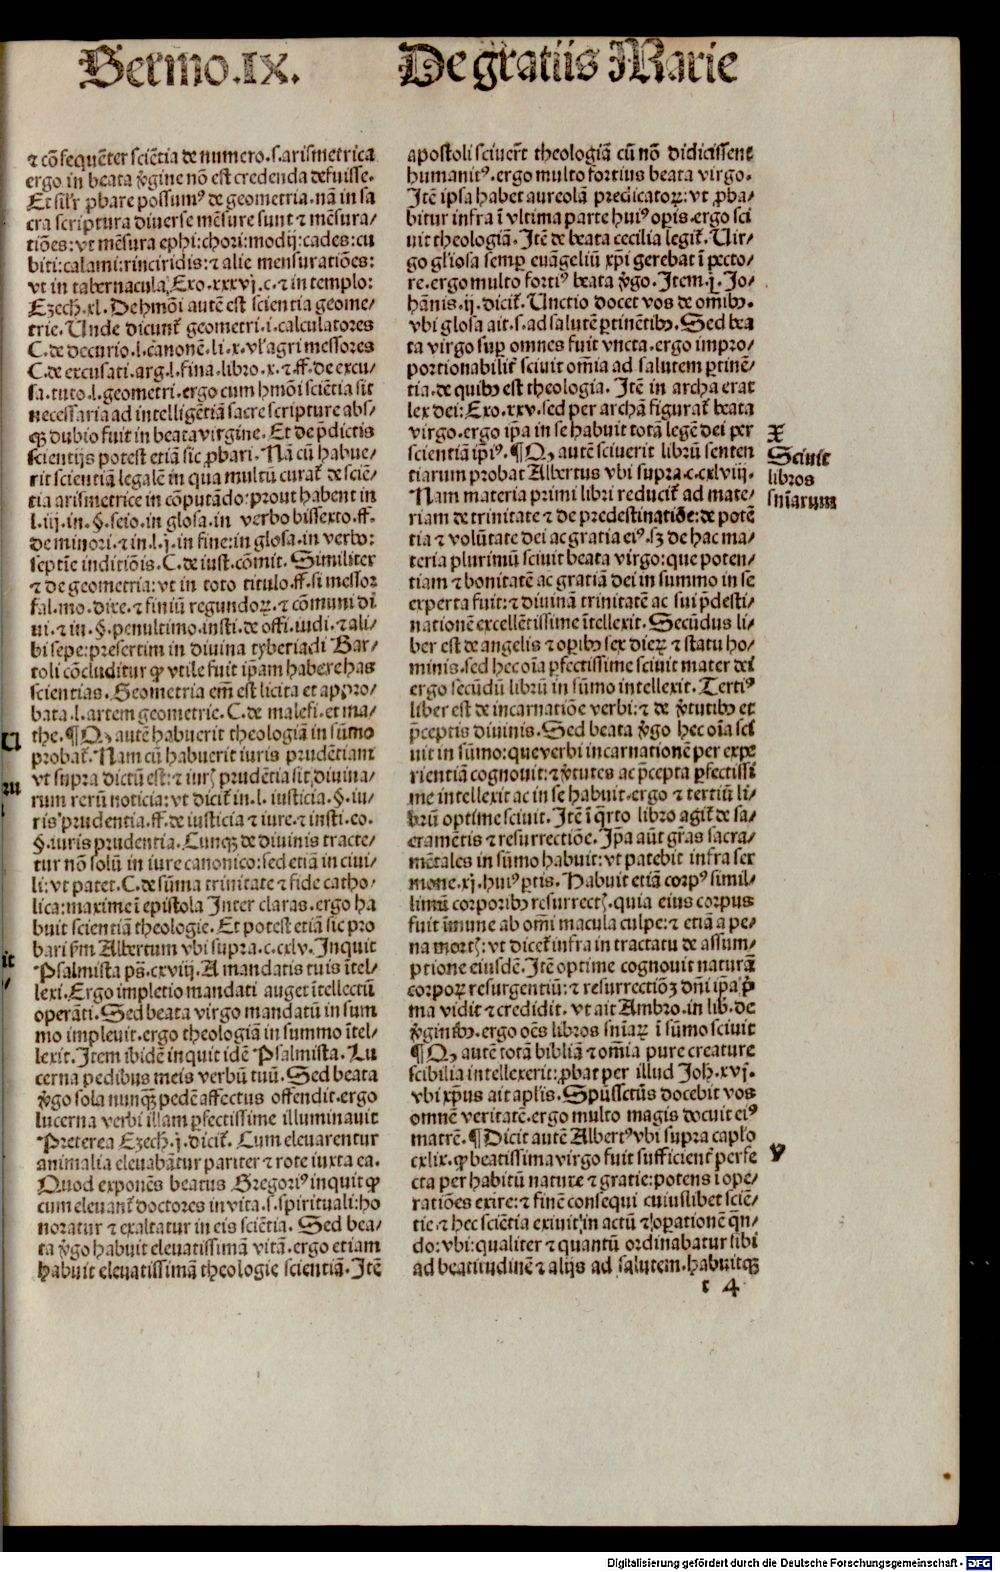 Sermo.IX. De gratijs Marie
⁊ cõsequẽter sciẽtia de numero.s.arismetrica
ergo in beata ṽgine nõ est credenda defuisse.
Et sil'r ꝓbare possumꝰ de geometria.nã in sa
cra scriptura diuerse mẽsure sunt ⁊ mẽsura/
tiões:vt mẽsura ephi:chori:modij:cades:cu
biti:calami:rinciridis:⁊ alie mensuratiões:
vt in tabernacula Exo.xxxvj.c.⁊ in templo:
Ezech.xl. De hmõi autẽ est scientia geome/
trie.Unde dicunt̃ geometri.i.calculatores
C.de decurio.l.canonẽ.li.x.vl'agri messores
C.de excusati.arg.l.fina.libro.x.⁊ ff.de excu/
sa.tuto.l.geometri.ergo cum hmõi sciẽtia sit
necessaria ad intelligẽtiã sacre scripture abs/
qꝫ dubio fuit in beata virgine. Et de p̃dictis
scientijs potest etiã sic ꝓbari. Nã cũ habue/
rit scientiã legalẽ in qua multũ curat̃ de sciẽ/
tia arismetrice in cõputãdo:prout habent in
l.iij.in.§.seio.in glosa.in verbo bissexto.ff.
de minori.⁊ in.l.j.in fine:in glosa.in verbo:
septie inditiõis.C.de iust.cõmit. Similiter
⁊ de geometria:vt in toto titulo.ff.si messor
fal.mo.dixe.⁊ finiũ regundoꝝ.⁊ cõmuni di
ui.⁊ in.§.penultimo.insti.de offi.iudi.⁊ ali/
bi sepe:presertim in diuina tyberiadi Bar/
toli cõcluditur ꝙ vtile fuit ip̃am habere has
scientias. Geometria em̃ est licita et appro/
bata.l.artem geometrie.C.de malefi.et ma/
the.¶Qꝫ autẽ habuerit theologiã in sũmo
probat̃.Nam cũ habuerit iuris prudẽtiam
vt supra dictũ est:⁊ iurꝭ prudẽtia sit diuina/
rum rerũ noticia:vt dicit̃ in.l.iusticia.§.iu/
ris prudentia.ff.de iusticia ⁊ iure.⁊ insti.eo.
§.iuris prudentia.Cunqꝫ de diuinis tracte/
tur nõ solũ in iure canonico:sed etiã in ciui/
li:vt patet.C.de sũma trinitate ⁊ fide catho/
lica:maxime ĩ epistola Inter claras.ergo ha
buit scientiã theologie. Et potest etiã sic pro
bari ẜm Albertum vbi supra.c.cxlv. Inquit
Psalmista ps̃.cxviij.A mandatis tuis ĩtel/
lexi.Ergo impletio mandati auget ĩtellectũ
operãti.Sed beata virgo mandatũ in sum
mo impleuit.ergo theologiã in summo ĩtel/
lexit.Item ibidẽ inquit idẽ Psalmista.Lu
cerna pedibus meis verbũ tuũ.Sed beata
ṽgo sola nunqꝫ pedẽ affectus offendit.ergo
lucerna verbi illam ꝑfectissime illuminauit
Preterea Ezech.j.dicit̃. Cum eleuarentur
animalia eleuabãtur pariter ⁊ rote iuxta ea.
Quod exponẽs beatus Gregoriꝰ inquit ꝙ
cum eleuant̃ doctores in vita.s.spirituali:ho
noratur ⁊ exaltatur in eis sciẽtia. Sed bea/
ta ṽgo habuit eleuatissimã vitã.ergo etiam
habuit eleuatissimã theologie scientiã.Itẽ
apostoli sciuer̃t theologiã cũ nõ didicissent
humanitꝰ.ergo multo fortius beata virgo.
Itẽ ipsa habet aureolã predicatoꝝ:vt ꝓba/
bitur infra ĩ vltima parte huiꝰ opis.ergo sci
uit theologiã. Itẽ de beata cecilia legit̃.Uir/
go gl'iosa semꝑ euãgeliũ xp̃i gerebat ĩ pecto/
re.ergo multo fortiꝰ beata ṽgo.Item.j.Jo/
hãnis.ij.dicit̃.Unctio docet vos de om̃ibꝰ.
vbi glosa ait.s.ad salutẽ ꝑtinẽtibꝰ. Sed bea
ta virgo suꝑ omnes fuit vncta.ergo impro/
portionabilit̃ sciuit om̃ia ad salutem ꝑtinẽ/
tia.de quibꝰ est theologia. Itẽ in archa erat
lex dei:Exo.xxv.sed per archã figurat̃ beata
virgo.ergo ip̃a in se habuit totã legẽ dei per
scientiã ip̃iꝰ.¶Qꝫ autẽ sciuerit librũ senten
tiarum probat Albertus vbi supra.c.cxlviij.
Nam materia primi libri reducit̃ ad mate/
riam de trinitate ⁊ de predestinatiõe:de potẽ
tia ⁊ volũtate dei ac gratia eiꝰ.sꝫ de hac ma/
teria plurimũ sciuit beata virgo:que poten/
tiam ⁊ bonitatẽ ac gratiã dei in summo in se
experta fuit:⁊ diuinã trinitatẽ ac sui p̃desti/
nationẽ excellẽtissime ĩtellexit.Secũdus li/
ber est de angelis ⁊ opibꝰ sex dieꝝ ⁊ statu ho/
minis.sed hec oĩa ꝑfectissime sciuit mater dei
ergo secũdũ librũ in sũmo intellexit.Tertiꝰ
liber est de incarnatiõe verbi:⁊ de ṽtutibꝰ et
p̃ceptis diuinis. Sed beata ṽgo hec oĩa sci
uit in sũmo:que verbi incarnationẽ per expe
rientiã cognouit:⁊ ṽtutes ac p̃cepta ꝑfectissi
me intellexit ac in se habuit.ergo ⁊ tertiũ li/
brũ optime sciuit.Itẽ ĩ q̃rto libro agit̃ de sa/
cramẽtis ⁊ resurrectiõe.Ip̃a aũt gr̃as sacra/
mẽtales in sũmo habuit:vt patebit infra ser
mone.xj.huiꝰ ꝑtis. Habuit etiã corpꝰ simil/
limũ corporibꝰ resurrectꝭ.quia eius corpus
fuit ĩmune ab om̃i macula culpe:⁊ etiã a pe/
na mortꝭ:vt dicet̃ infra in tractatu de assum/
ptione eiusdẽ.Itẽ optime cognouit naturã
corpoꝝ resurgentiũ:⁊ resurrectiõꝫ dñi ip̃a p̃
ma vidit ⁊ credidit.vt ait Ambro.in lib.de
ṽginibꝰ.ergo oẽs libros sñiaꝝ ĩ sũmo sciuit
¶Qꝫ autẽ totã bibliã ⁊ om̃ia pure creature
scibilia intellexerit:ꝓbat̃ per illud Joh.xvj.
vbi xp̃us ait ap̃lis.Sp̃ussctũs docebit vos
omnẽ veritatẽ.ergo multo magis docuit eiꝰ
matrẽ.¶Dicit autẽ Albertꝰ vbi supra cap̃lo
cxlix.ꝙ beatissima virgo fuit sufficient̃ perfe
cta per habitũ nature ⁊ gratie:potens ĩ ope/
ratiões exire:⁊ finẽ consequi cuiuslibet sciẽ/
tie.⁊ hec sciẽtia exiuit in actũ ⁊ oꝑationẽ q̃n/
do:vbi:qualiter ⁊ quantũ ordinabatur sibi
ad beatitudinẽ ⁊ alijs ad salutem.habuitqꝫ
X
Sciuit
libros
sñiarum
Y
t 4
Digitalisierung gefördert durch die Deutsche Forschungsgemeinschaft - DFG